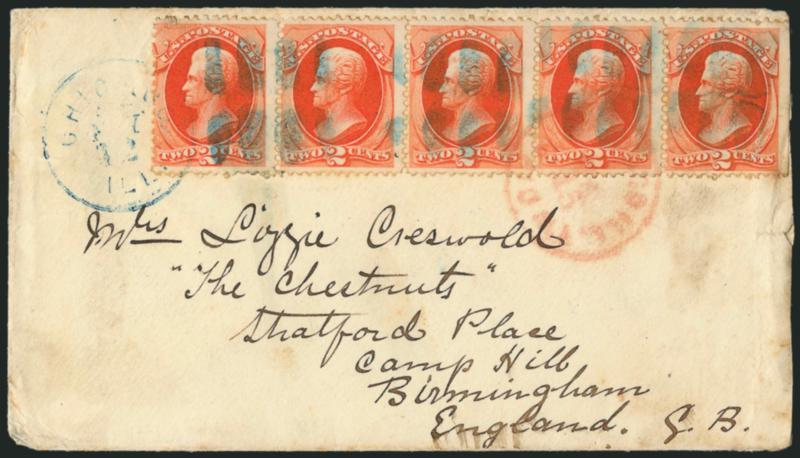 U.S. POSTAGE U.S. POSTAGE U.S. POSTAGE U.S. POSTAGE U.S. POSTAGE
TWO 2 CENTS TWO 2 CENTS TWO 2 CENTS TWO 2 CENTS TWO 2 CENTS
ILL
Mrs Lizzie Creswold
"The Chestnuts"
Stratford Place
Camp Hill
Birmingham
England. G. B.